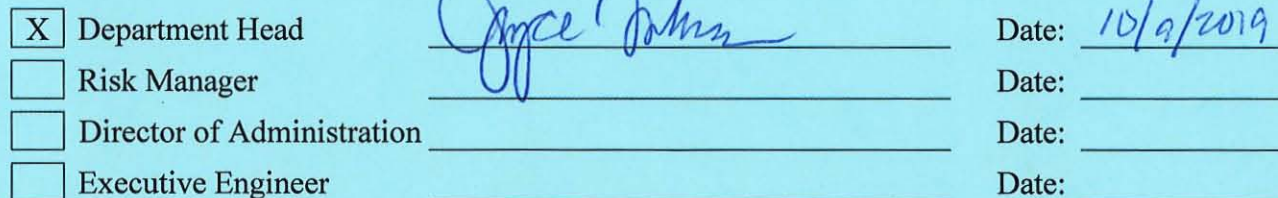 X Department Head Joyce Johnson Date: 10/9/2019
Risk Manager Date:
Director of Administration Date:
Executive Engineer Date: